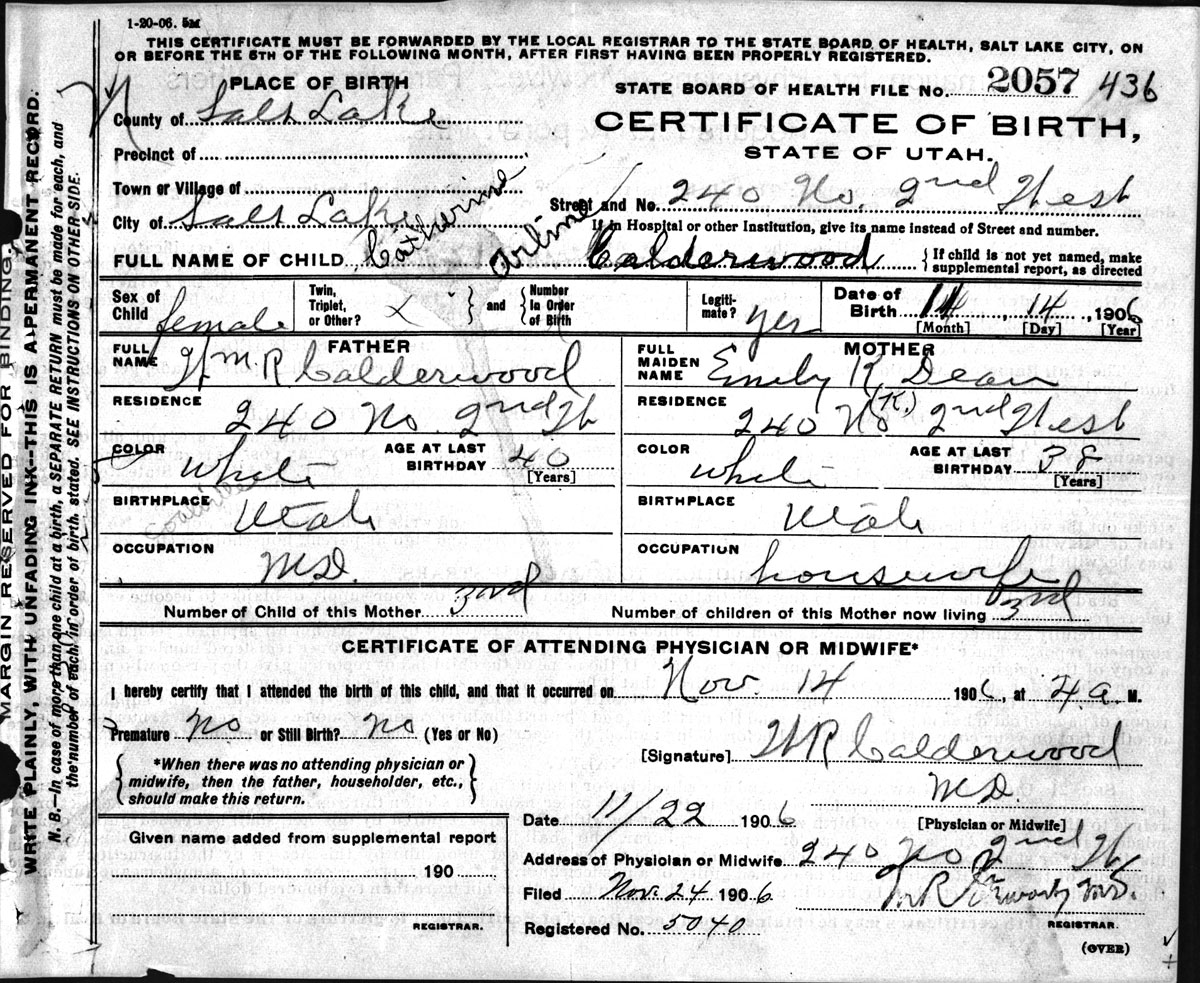 1-20-06. 5M
THIS CERTIFICATE MUST BE FORWARDED BY THE LOCAL REGISTRAR TO THE STATE BOARD OF HEALTH, SALT LAKE CITY, ON
OR BEFORE THE 5TH OF THE FOLLOWING MONTH, AFTER FIRST HAVING BEEN PROPERLY REGISTERED.
PLACE OF BIRTH
STATE BOARD OF HEALTH FILE No. 2057 436
County of Salt Lake
CERTIFICATE OF BIRTH,
STATE OF UTAH.
Precinct of
Town or Village of
Street and No. 240 No. 2nd West
City of Salt Lake
If in Hospital or other Institution, give its name instead of Street and number.
FULL NAME OF CHILD Catherine Arline Calderwood { If child is not yet named, make
supplemental report, as directed
Sex of Child female
Twin, Triplet, or Other? } and { Number in Order of Birth
Legitimate? yes
Date of Birth 11 14, 1906
[Month] [Day] [Year]
FATHER
FULL NAME Wm R Calderwood
MOTHER
FULL MAIDEN NAME Emily K Dean
(K.)
RESIDENCE 240 No 2nd W
RESIDENCE 240 No 2nd West
COLOR white AGE AT LAST BIRTHDAY 40 [Years]
COLOR white AGE AT LAST BIRTHDAY 38 [Years]
BIRTHPLACE Utah
Coalville
BIRTHPLACE Utah
OCCUPATION M.D.
OCCUPATION housewife
Number of Child of this Mother 3rd
Number of children of this Mother now living 3rd
CERTIFICATE OF ATTENDING PHYSICIAN OR MIDWIFE*
I hereby certify that I attended the birth of this child, and that it occurred on Nov. 14 1906, at 4 a. M.
Premature no or Still Birth? no (Yes or No)
[Signature] W R Calderwood
M.D.
[Physician or Midwife]
{ *When there was no attending physician or
midwife, then the father, householder, etc.,
should make this return. }
Date 11/22 1906
Address of Physician or Midwife 240 No 2nd W
Given name added from supplemental report
190
REGISTRAR.
Filed Nov. 24 1906
Registered No. 5040
REGISTRAR.
(OVER)
MARGIN RESERVED FOR BINDING.
WRITE PLAINLY, WITH UNFADING INK—THIS IS A PERMANENT RECORD.
N. B.—In case of more than one child at a birth, a SEPARATE RETURN must be made for each, and
the number of each, in order of birth, stated. SEE INSTRUCTIONS ON OTHER SIDE.